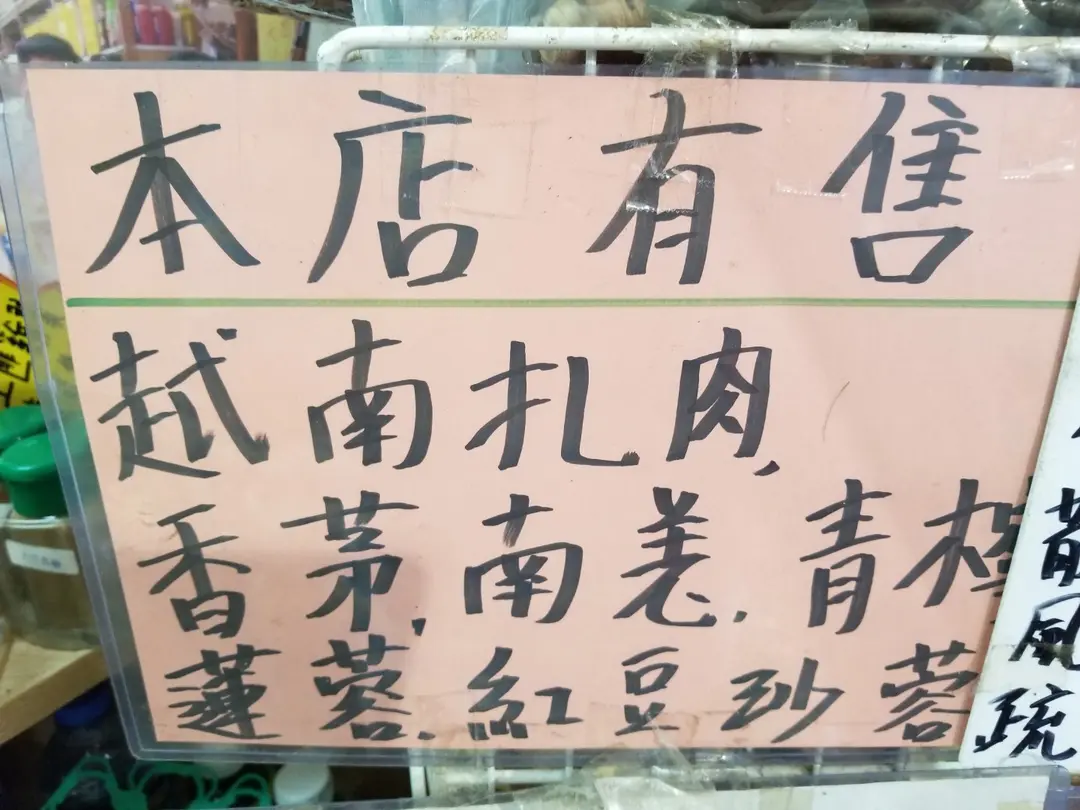 本店有售
越南扎肉,
香茅,南羌.青
蓮蓉.紅豆沙蓉
風
疏